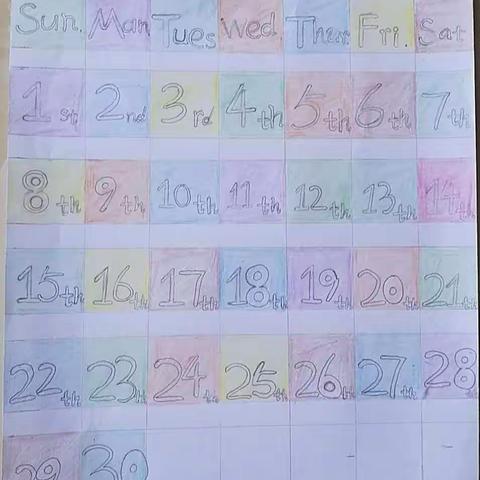 Sun. Mon Tues Wed. Thur. Fri. Sat
1st 2nd 3rd 4th 5th 6th 7th
8th 9th 10th 11th 12th 13th 14th
15th 16th 17th 18th 19th 20th 21th
22th 23th 24th 25th 26th 27th 28
29 30